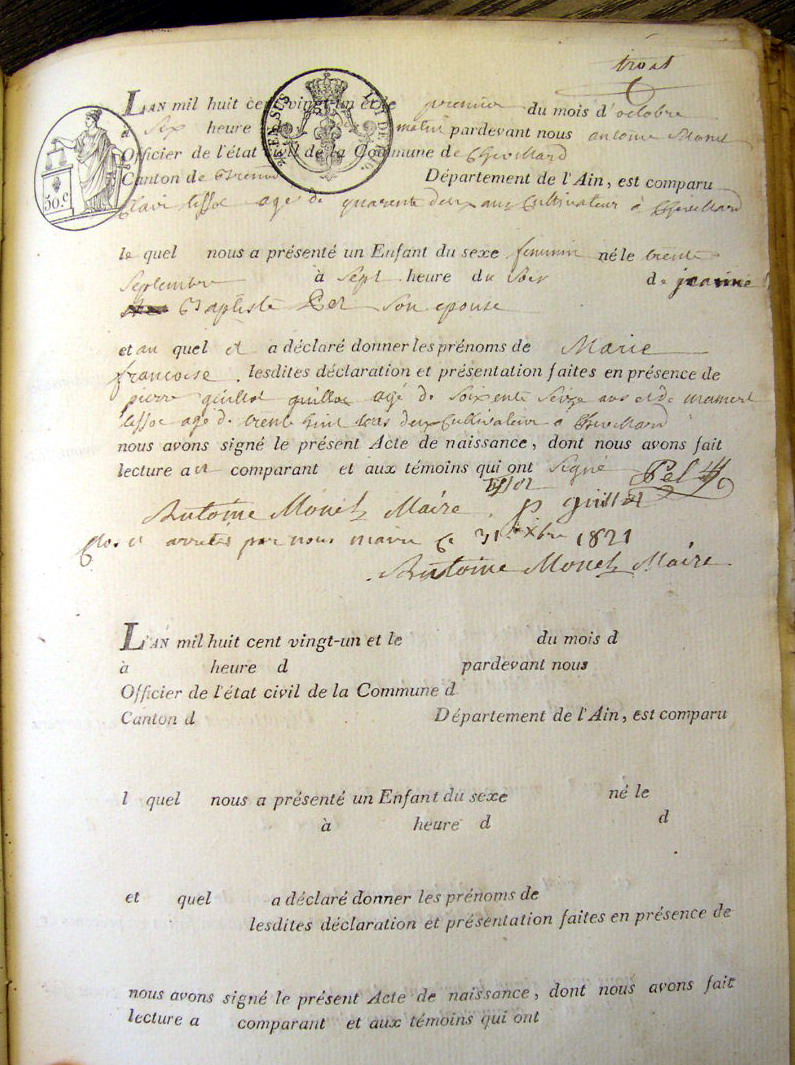 trois
L'AN mil huit cent vingt-un et le premier du mois d'octobre
à six heure matin pardevant nous antoine Monet
Officier de l'état civil de la Commune de Chevillard
Canton de Département de l'Ain, est comparu
agé de quarente deux ans Cultivateur à Chevillard
le quel nous a présenté un Enfant du sexe feminin né le trente
Septembre à Sept heure du soir de jeanne
Baptiste son epouse
et au quel a déclaré donner les prénoms de Marie
francoise. lesdites déclaration et présentation faites en présence de
pierre guillot agé de soixente seize ans et de mamert
agé de trente huit tous deux Cultivateur a Chevillard
nous avons signé le présent Acte de naissance, dont nous avons fait
lecture au comparant et aux témoins qui ont signé
Antoine Monet Maire. p guillot
Clos et arretés par nous maire Ce 31 Xbre 1821
Antoine Monet Maire.
30.C
L'AN mil huit cent vingt-un et le du mois d
à heure d pardevant nous
Officier de l'état civil de la Commune d
Canton d Département de l'Ain, est comparu
l quel nous a présenté un Enfant du sexe né le
à heure d d
et quel a déclaré donner les prénoms de
lesdites déclaration et présentation faites en présence de
nous avons signé le présent Acte de naissance, dont nous avons fait
lecture a comparant et aux témoins qui ont